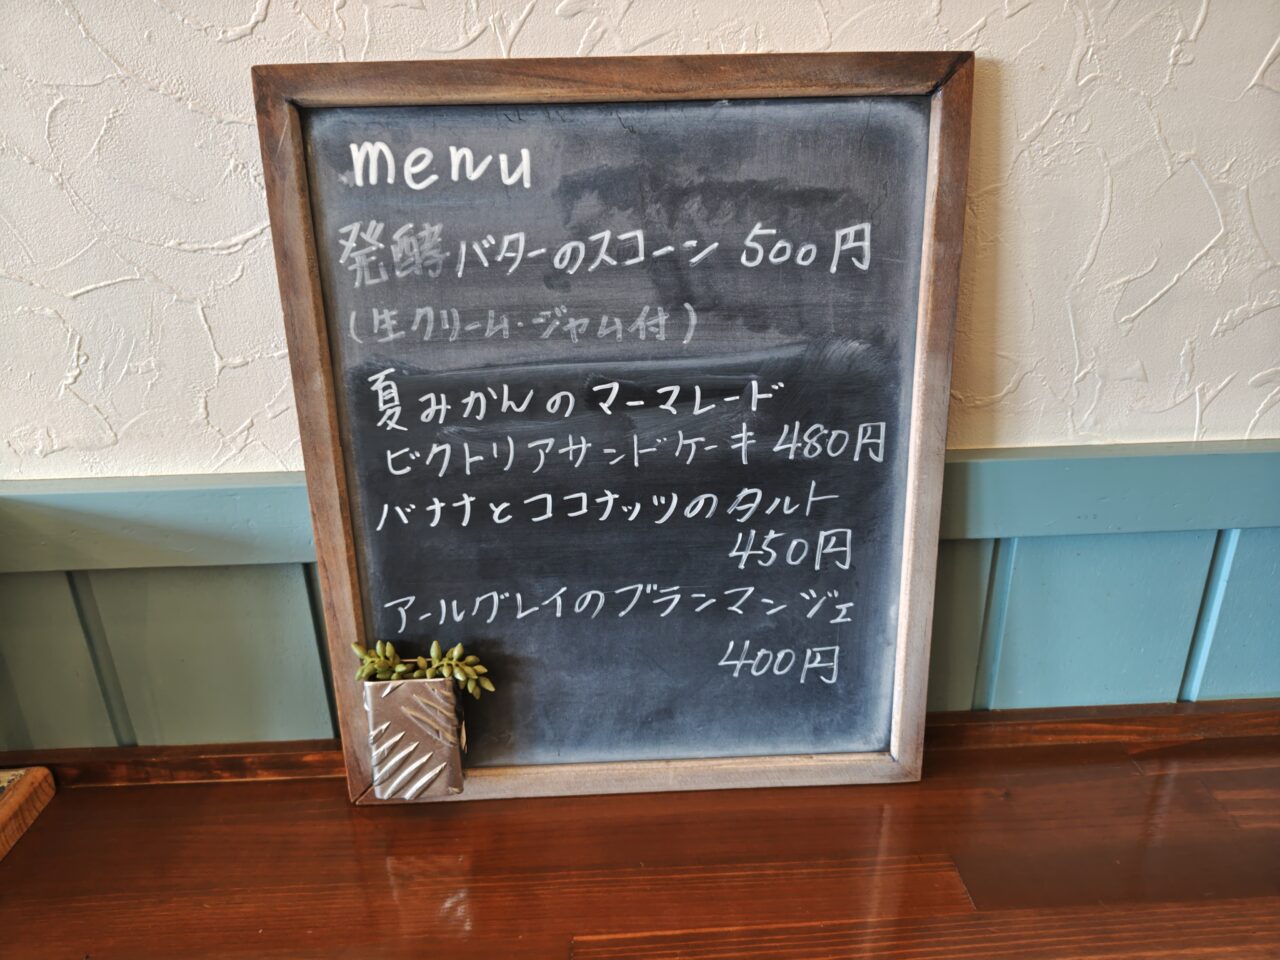 menu
発酵バターのスコーン 500円
(生クリーム・ジャム付)
夏みかんのマーマレード
ビクトリアサンドケーキ 480円
バナナとココナッツのタルト
450円
アールグレイのブランマンジェ
400円